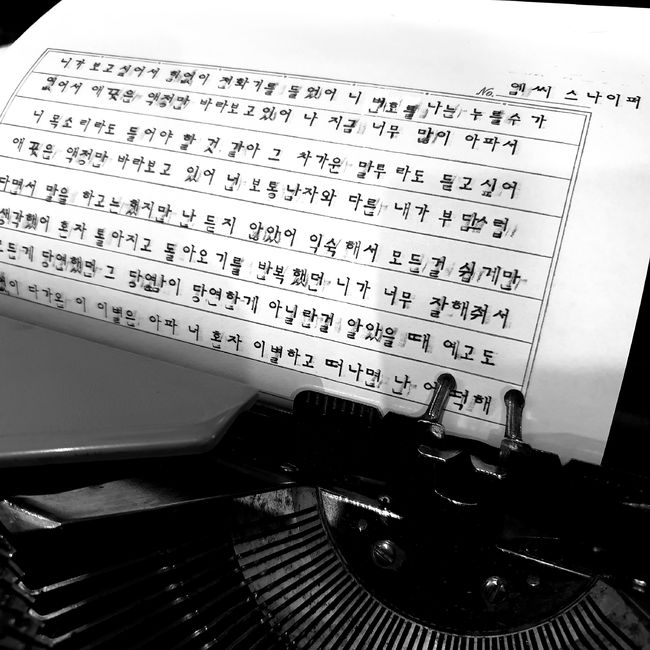 No. 엠씨 스나이퍼
니가 보고싶어서 힘없이 전화기를 들었어 니 번호를 나는 누를수 가
없어서 애꿎은 액정만 바라보고있어 나 지금 너무 많이 아파서
니 목소리라도 들어야 할 것 같아 그 차가운 말투 라도 듣고싶어
애꿎은 액정만 바라보고 있어 넌 보통남자와 다른 내가 부담스럽
다면서 말을 하고는했지만 난 듣지 않았어 익숙해서 모든걸 쉽게만
생각했어 혼자 토라지고 돌아오기를 반복했던 니가 너무 잘해줘서
모든게 당연했던 그 당연함이 당연한게 아닐란걸 알았을 때 예고도
없이 다가온 이 이별은 아파 너 혼자 이별하고 떠나면 난 어떡해